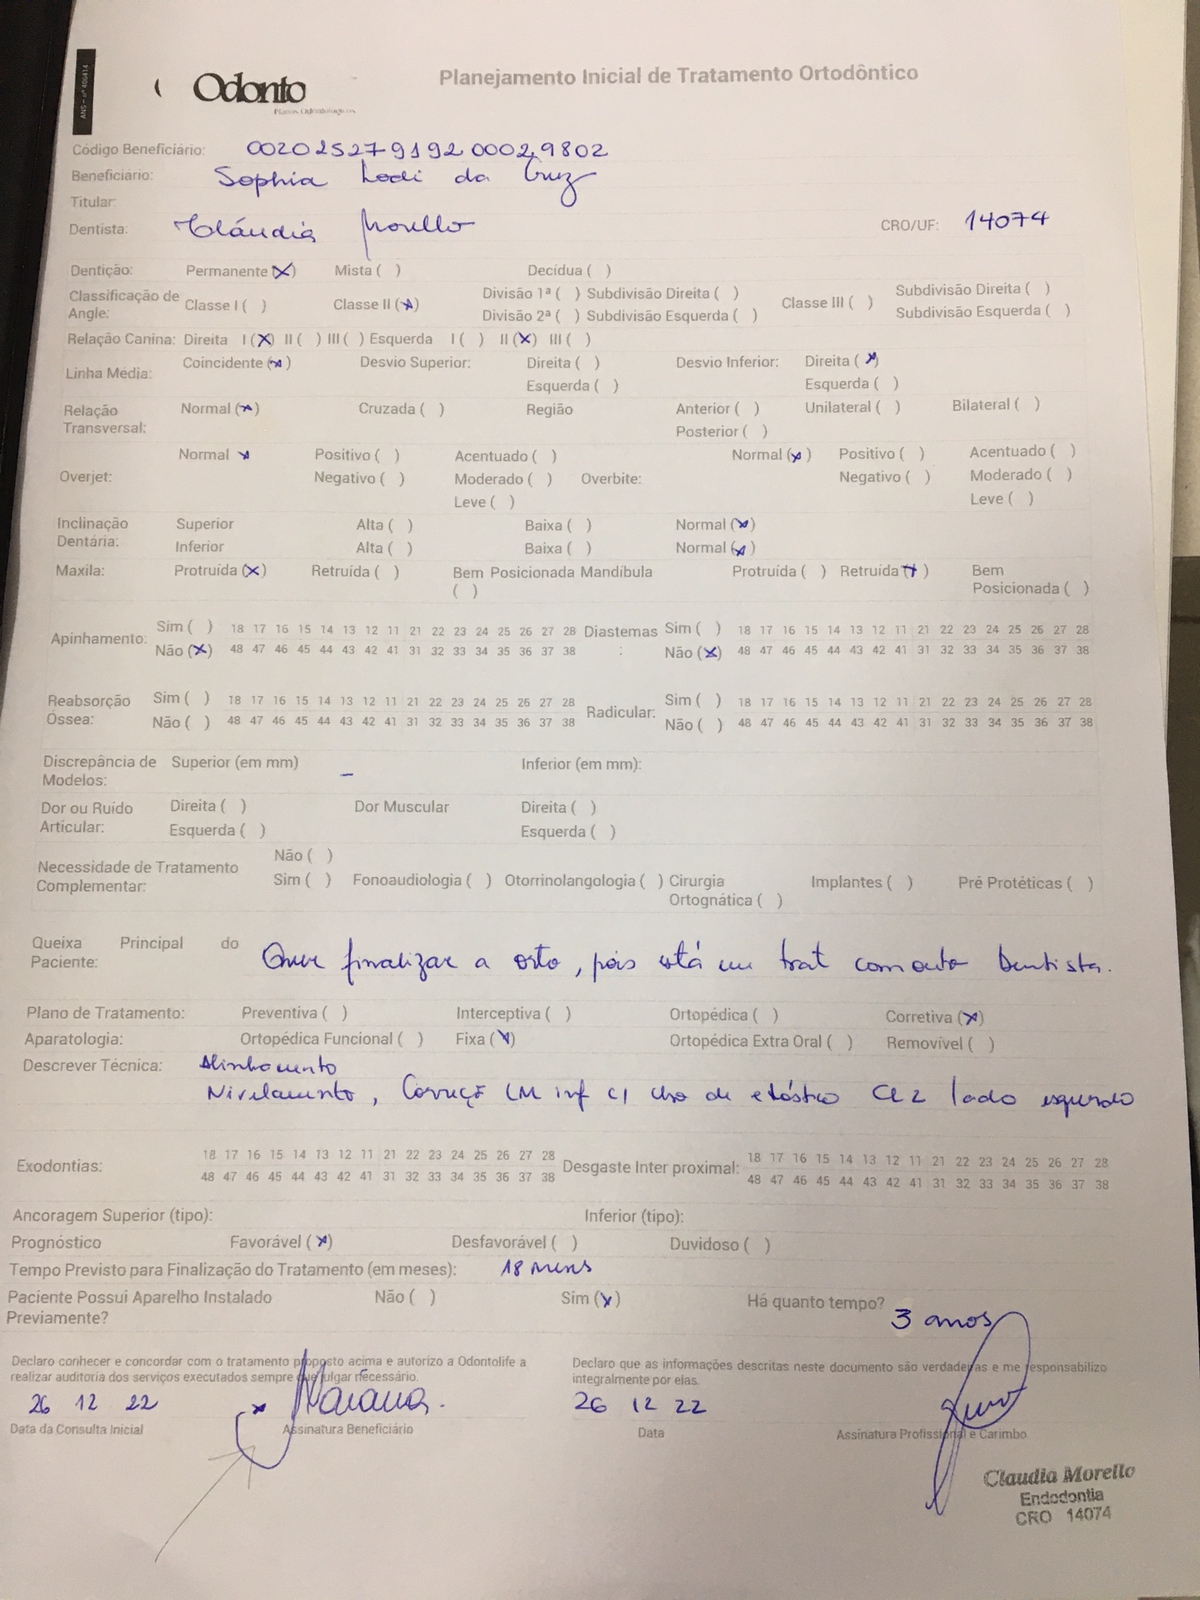 ANS - nº 406414
Odonto
Planos Odontológicos
Planejamento Inicial de Tratamento Ortodôntico
Código Beneficiário: 00202527919200029802
Beneficiário: Sophia Lodi da Cruz
Titular:
Dentista: Cláudia Morello CRO/UF: 14074
Dentição: Permanente (X) Mista ( ) Decídua ( )
Classificação de Angle: Classe I ( ) Classe II (X) Divisão 1ª ( ) Subdivisão Direita ( ) Classe III ( ) Subdivisão Direita ( )
Divisão 2ª ( ) Subdivisão Esquerda ( ) Subdivisão Esquerda ( )
Relação Canina: Direita I (X) II ( ) III ( ) Esquerda I ( ) II (X) III ( )
Linha Média: Coincidente (X) Desvio Superior: Direita ( ) Desvio Inferior: Direita (X)
Esquerda ( ) Esquerda ( )
Relação Transversal: Normal (X) Cruzada ( ) Região Anterior ( ) Unilateral ( ) Bilateral ( )
Posterior ( )
Normal X Positivo ( ) Acentuado ( ) Normal (X) Positivo ( ) Acentuado ( )
Overjet: Negativo ( ) Moderado ( ) Overbite: Negativo ( ) Moderado ( )
Leve ( ) Leve ( )
Inclinação Dentária: Superior Alta ( ) Baixa ( ) Normal (X)
Inferior Alta ( ) Baixa ( ) Normal (X)
Maxila: Protruída (X) Retruída ( ) Bem Posicionada ( ) Mandíbula Protruída ( ) Retruída (X) Bem Posicionada ( )
Apinhamento: Sim ( ) 18 17 16 15 14 13 12 11 21 22 23 24 25 26 27 28 Diastemas : Sim ( ) 18 17 16 15 14 13 12 11 21 22 23 24 25 26 27 28
Não (X) 48 47 46 45 44 43 42 41 31 32 33 34 35 36 37 38 Não (X) 48 47 46 45 44 43 42 41 31 32 33 34 35 36 37 38
Reabsorção Óssea: Sim ( ) 18 17 16 15 14 13 12 11 21 22 23 24 25 26 27 28 Radicular: Sim ( ) 18 17 16 15 14 13 12 11 21 22 23 24 25 26 27 28
Não ( ) 48 47 46 45 44 43 42 41 31 32 33 34 35 36 37 38 Não ( ) 48 47 46 45 44 43 42 41 31 32 33 34 35 36 37 38
Discrepância de Modelos: Superior (em mm) – Inferior (em mm):
Dor ou Ruído Articular: Direita ( ) Dor Muscular Direita ( )
Esquerda ( ) Esquerda ( )
Necessidade de Tratamento Complementar: Não ( )
Sim ( ) Fonoaudiologia ( ) Otorrinolangologia ( ) Cirurgia Ortognática ( ) Implantes ( ) Pré Protéticas ( )
Queixa Principal do Paciente: Quer finalizar a orto, pois está em trat com outro dentista.
Plano de Tratamento: Preventiva ( ) Interceptiva ( ) Ortopédica ( ) Corretiva (X)
Aparatologia: Ortopédica Funcional ( ) Fixa (X) Ortopédica Extra Oral ( ) Removível ( )
Descrever Técnica: Alinhamento
Nivelamento, Correção LM inf c/ uso de elástico CL2 lado esquerdo
Exodontias: 18 17 16 15 14 13 12 11 21 22 23 24 25 26 27 28 Desgaste Inter proximal: 18 17 16 15 14 13 12 11 21 22 23 24 25 26 27 28
48 47 46 45 44 43 42 41 31 32 33 34 35 36 37 38 48 47 46 45 44 43 42 41 31 32 33 34 35 36 37 38
Ancoragem Superior (tipo): Inferior (tipo):
Prognóstico Favorável (X) Desfavorável ( ) Duvidoso ( )
Tempo Previsto para Finalização do Tratamento (em meses): 18 meses
Paciente Possui Aparelho Instalado Previamente? Não ( ) Sim (X) Há quanto tempo? 3 anos
Declaro conhecer e concordar com o tratamento proposto acima e autorizo a Odontolife a
realizar auditoria dos serviços executados sempre que julgar necessário.
Declaro que as informações descritas neste documento são verdadeiras e me responsabilizo
integralmente por elas.
26 12 22 x 26 12 22
Data da Consulta Inicial Assinatura Beneficiário Data Assinatura Profissional e Carimbo
Claudia Morello
Endodontia
CRO 14074